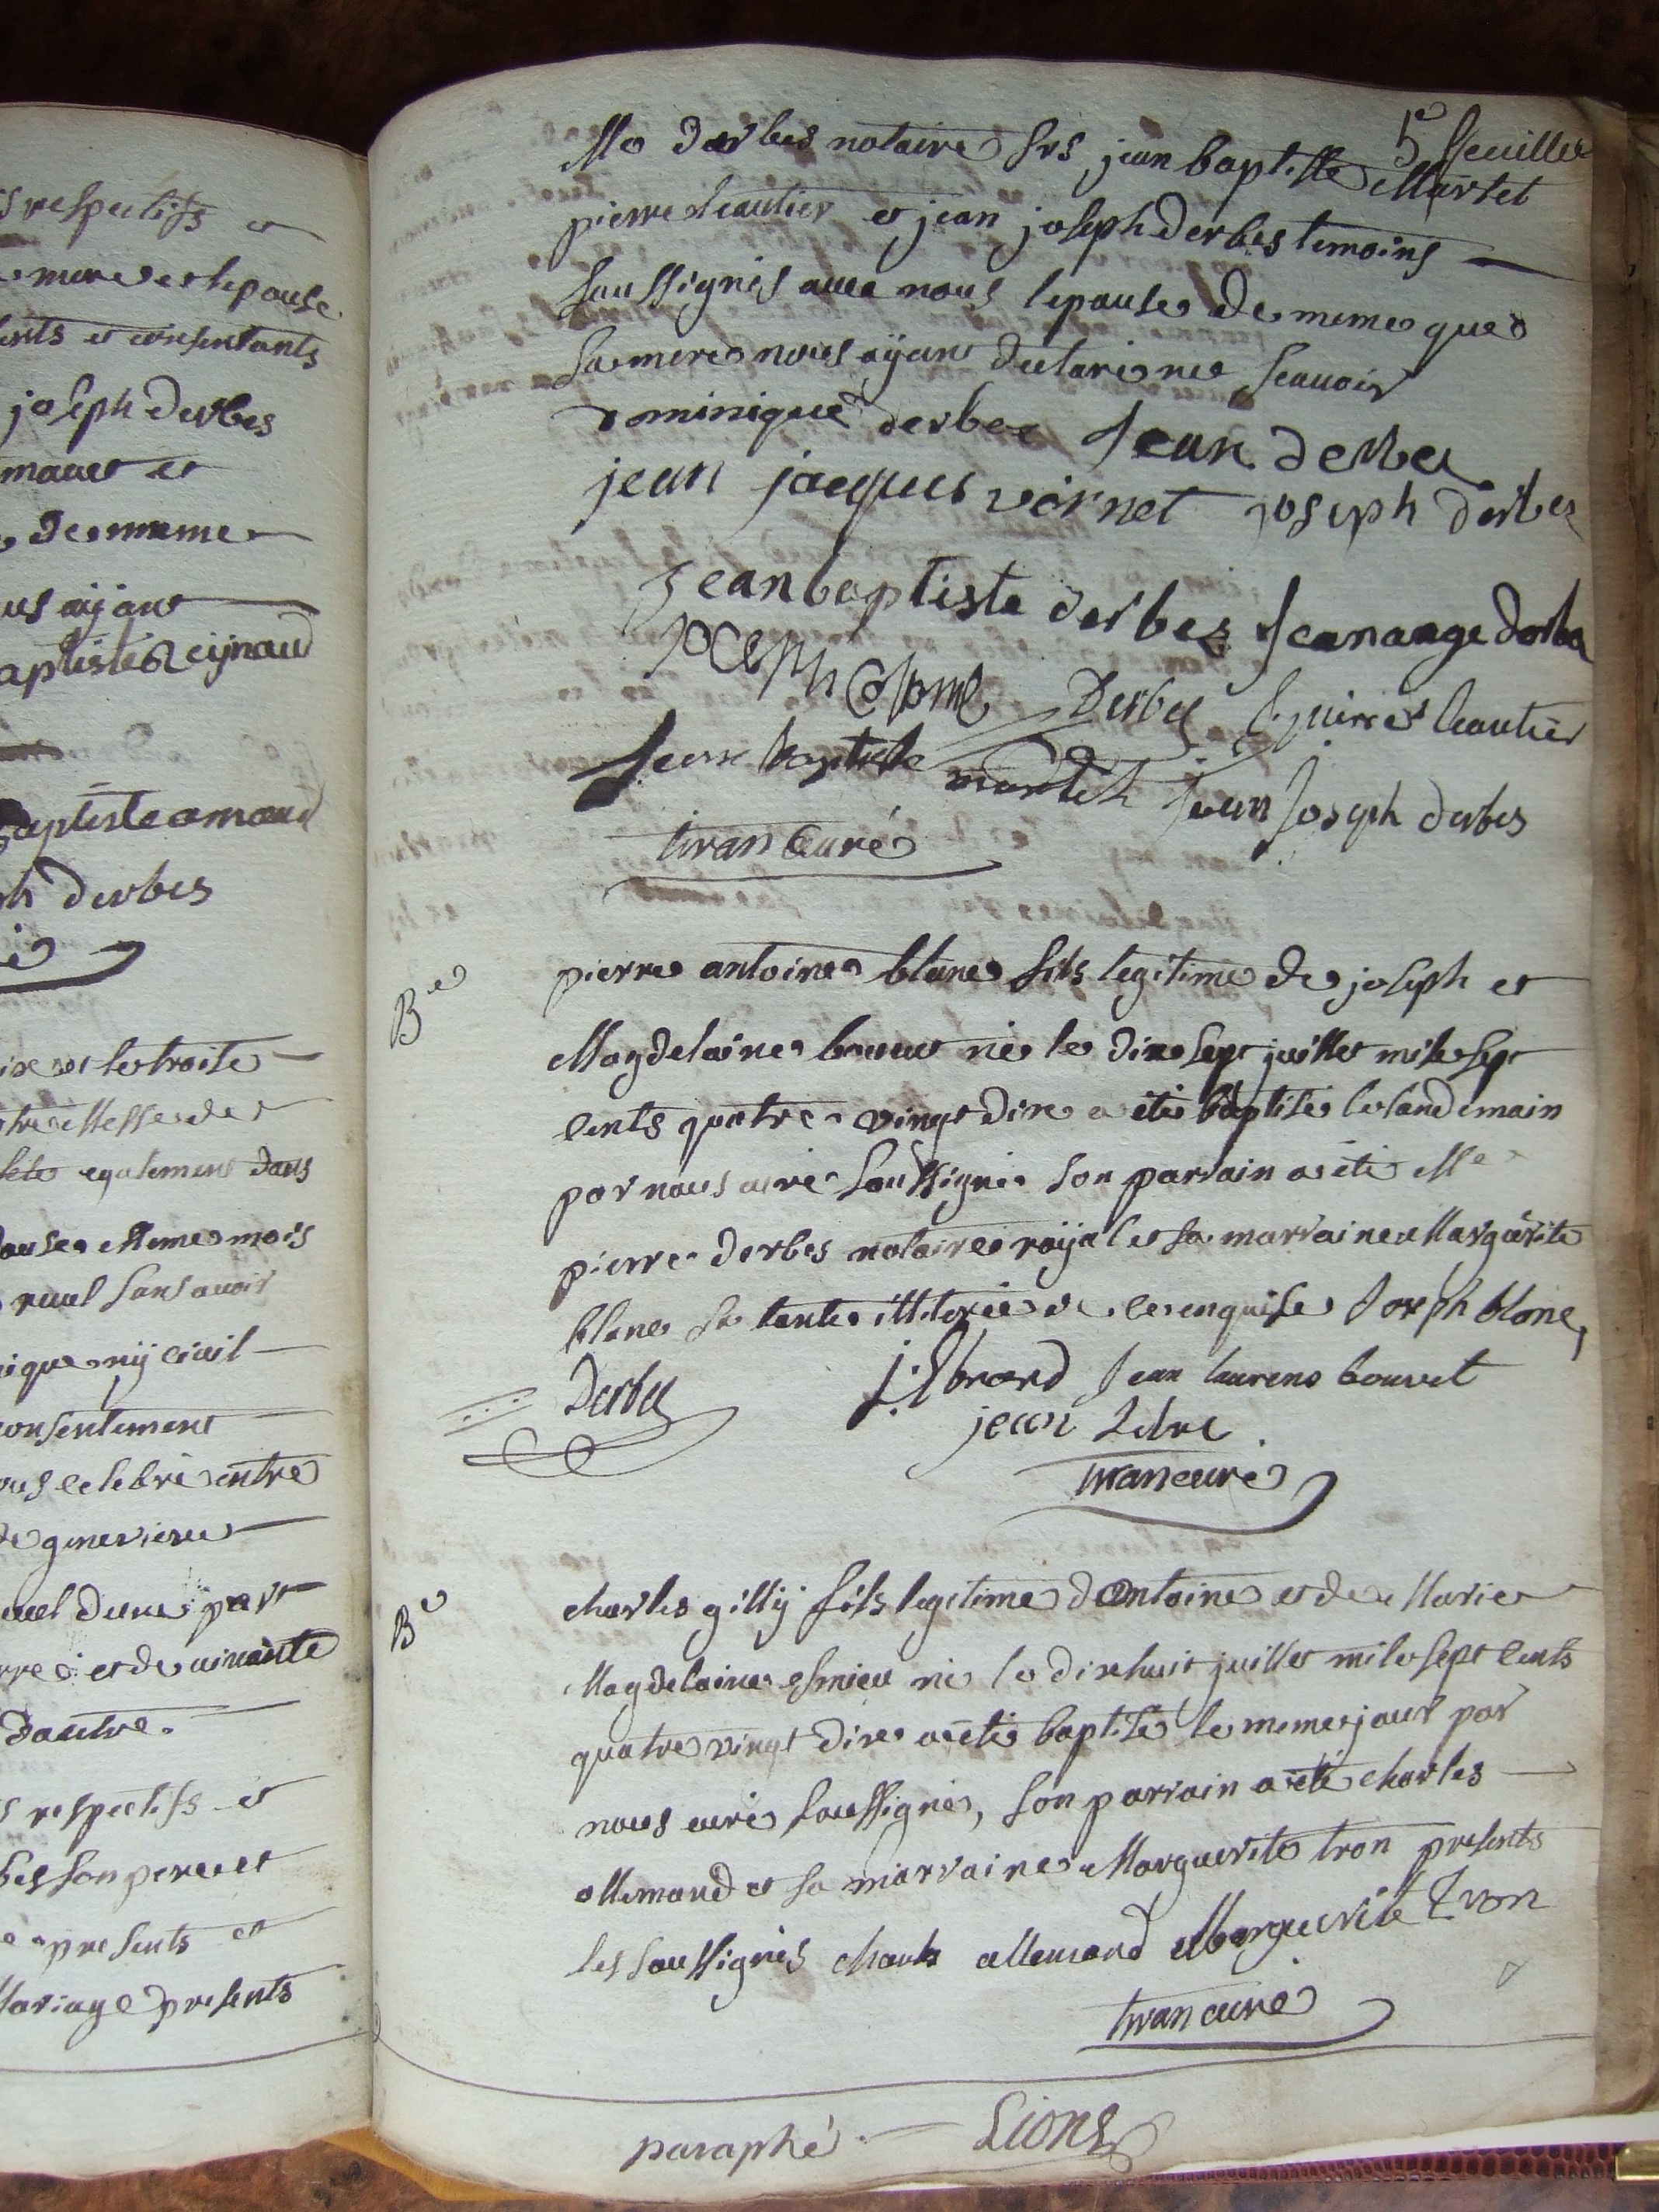 s respectifs et
mere et lepouse
ents et consentants
joseph derbes
et
de meme
us aÿant
aptiste Reÿnaud
aptiste amaud
ph derbes
et le traite
tre Messe de
lete egalement dans
Meme mois
sans avoir
ique nÿ civil
consentement
ous celebré entre
de genevieve
duel dune part
et de
dautre.
s respectifs et
bes son pere et
presents et
Mariage presents
5e feuillet
Me derbes notaire srs jean baptiste Martel
pierre leautier et jean joseph derbes temoins
soussignés avec nous lepouse de meme que
sa mere nous aÿant declaré ne scavoir
dominique derbes Jean derbes
jean jacques vornet joseph derbes
Jean baptiste derbes Jean ange derbes
Derbes pierre leautier
Jean baptiste martel Jean Joseph derbes
tiran Curé
Be
pierre antoine blanc fils legitime de joseph et
Magdelaine bouvet né le dix sept juillet mile sept
cents quatre vingt dix a été baptisé le landemain
par nous curé soussigné son parrain a été Me
pierre derbes notaire roÿal et sa marraine Marguerite
blanc sa tante illiterée de ce enquise Joseph blanc,
Derbes J. Ebrard Jean laurens bouvet
jean
tiran curé
Be
charles gillÿ fils legitime dantoine et de Marie
Magdelaine esmieu né le dix huit juillet mile sept cents
quatre vingt dix a été baptisé le meme jour par
nous curé soussigné, son parrain a été charles
allemand et sa marraine Marguerite tron presents
les soussignés charles allemand Marguerite Tron
tiran curé
paraphé Lions